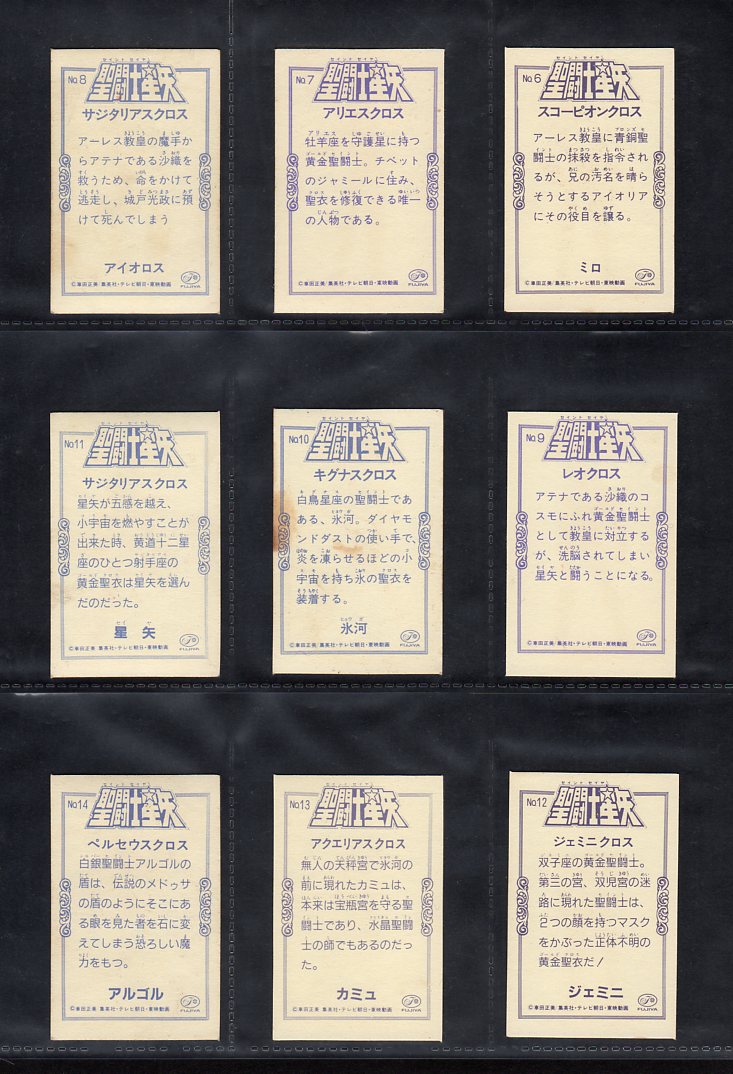 セイント セイヤ
No.8
聖闘士星矢
サジタリアスクロス
アーレス教皇の魔手か
らアテナである沙織を
救うため、命をかけて
逃走し、城戸光政に預
けて死んでしまう
アイオロス
©車田正美 集英社・テレビ朝日・東映動画
FUJIYA
セイント セイヤ
No.7
聖闘士星矢
アリエスクロス
牡羊座を守護星に持つ
黄金聖闘士。チベット
のジャミールに住み、
聖衣を修復できる唯一
の人物である。
©車田正美 集英社・テレビ朝日・東映動画
FUJIYA
セイント セイヤ
No.6
聖闘士星矢
スコーピオンクロス
アーレス教皇に青銅聖
闘士の抹殺を指令され
るが、兄の汚名を晴ら
そうとするアイオリア
にその役目を譲る。
ミロ
©車田正美 集英社・テレビ朝日・東映動画
FUJIYA
セイント セイヤ
No.11
聖闘士星矢
サジタリアスクロス
星矢が五感を越え、
小宇宙を燃やすことが
出来た時、黄道十二星
座のひとつ射手座の
黄金聖衣は星矢を選ん
だのだった。
星矢
©車田正美 集英社・テレビ朝日・東映動画
FUJIYA
セイント セイヤ
No.10
聖闘士星矢
キグナスクロス
白鳥星座の聖闘士であ
ある、氷河。ダイヤモ
ンドダストの使い手で、
炎を凍らせるほどの小
宇宙を持ち氷の聖衣を
装着する。
氷河
©車田正美 集英社・テレビ朝日・東映動画
FUJIYA
セイント セイヤ
No.9
聖闘士星矢
レオクロス
アテナである沙織のコ
スモにふれ黄金聖闘士
として教皇に対立する
が、洗脳されてしまい
星矢と闘うことになる。
©車田正美 集英社・テレビ朝日・東映動画
FUJIYA
セイント セイヤ
No.14
聖闘士星矢
ペルセウスクロス
白銀聖闘士アルゴルの
盾は、伝説のメドゥサ
の盾のようにそこにあ
る眼を見た者を石に変
えてしまう恐ろしい魔
力をもつ。
アルゴル
©車田正美 集英社・テレビ朝日・東映動画
FUJIYA
セイント セイヤ
No.13
聖闘士星矢
アクエリアスクロス
無人の天秤宮で氷河の
前に現れたカミュは、
本来は宝瓶宮を守る聖
闘士であり、水晶聖闘
士の師でもあるのだっ
た。
カミュ
©車田正美 集英社・テレビ朝日・東映動画
FUJIYA
セイント セイヤ
No.12
聖闘士星矢
ジェミニクロス
双子座の黄金聖闘士。
第三の宮、双児宮の迷
路に現れた聖闘士は、
2つの顔を持つマスク
をかぶった正体不明の
黄金聖衣だ!
ジェミニ
©車田正美 集英社・テレビ朝日・東映動画
FUJIYA